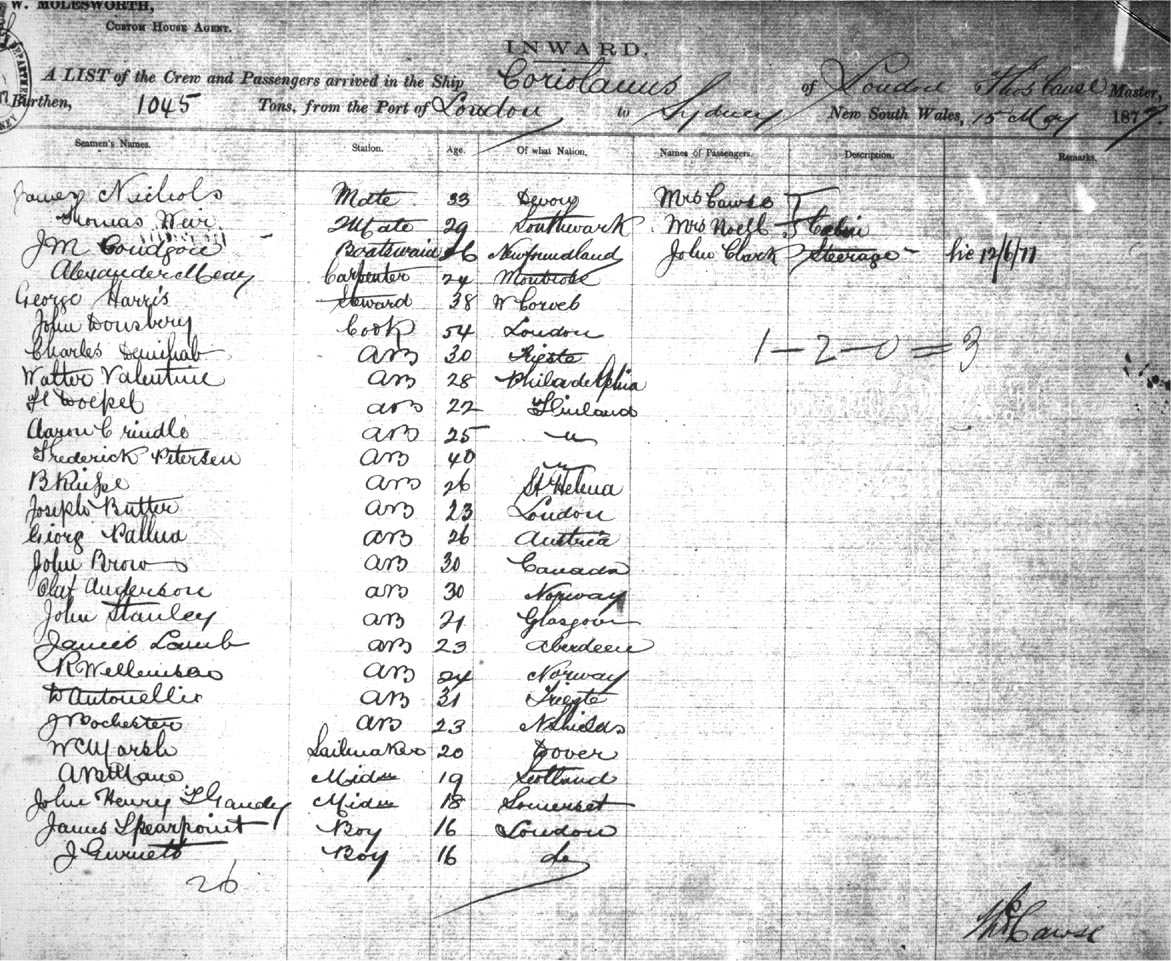 W. MOLESWORTH,
CUSTOM HOUSE AGENT.
INWARD.
A LIST of the Crew and Passengers arrived in the Ship Coriolanus of London Thos Cawse Master,
Burthen, 1045 Tons, from the Port of London to Sydney New South Wales, 15 May 1877
Seamen's Names. Station. Age. Of what Nation. Names of Passengers. Description. Remarks.
James Nichols Mate 33 Devon Mrs Cawse
Thomas Weir 2 Mate 29 Southwark Mrs Noell Cabin
J M Boatswain 26 Newfoundland John Clark Steerage lic 12/6/77
Alexander Carpenter 24 Montrose
George Harris Steward 38 W
John Cook 54 London
Charles AB 30 Trieste
1-2-0=3
Walter Valentine AB 28 Philadelphia
AB 22 Finland
Aaron Crindle AB 25 "
Frederick Petersen AB 40 "
B AB 26 St Helena
Joseph Butter AB 23 London
Georg AB 26 Austria
John Brown AB 30 Canada
Olaf Anderson AB 30 Norway
John Stanley AB 21 Glasgow
James Lamb AB 23 Aberdeen
R AB 24 Norway
AB 31 Trieste
J Rochester AB 23 N Shields
W C Marsh Sailmaker 20 Dover
A Midn 19 Scotland
John Henry Midn 18 Somerset
James Spearpoint Boy 16 London
J Gurnett Boy 16 do
26
Thos Cawse